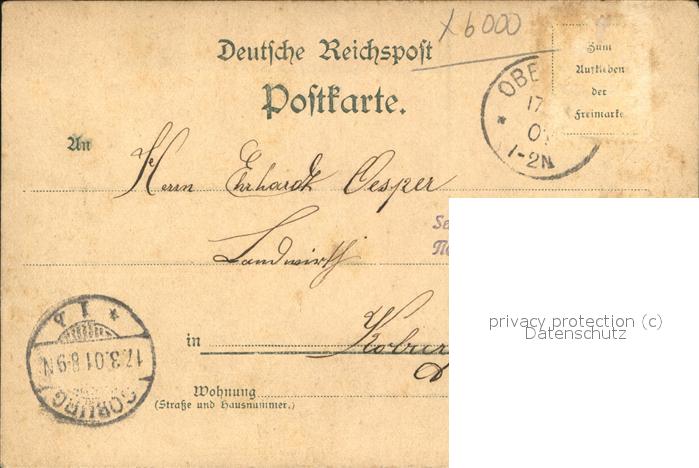 x 6000
Deutsche Reichspost
Postkarte.
Zum
Aufkleben
der
Freimarke
OBE
17
01
1-2N
An
Herrn Ehrhardt Oesper
Landwirth
in Kobur
Wohnung
(Straße und Hausnummer.)
COBURG 1
17.3.01.8-9N
privacy protection (c)
Datenschutz